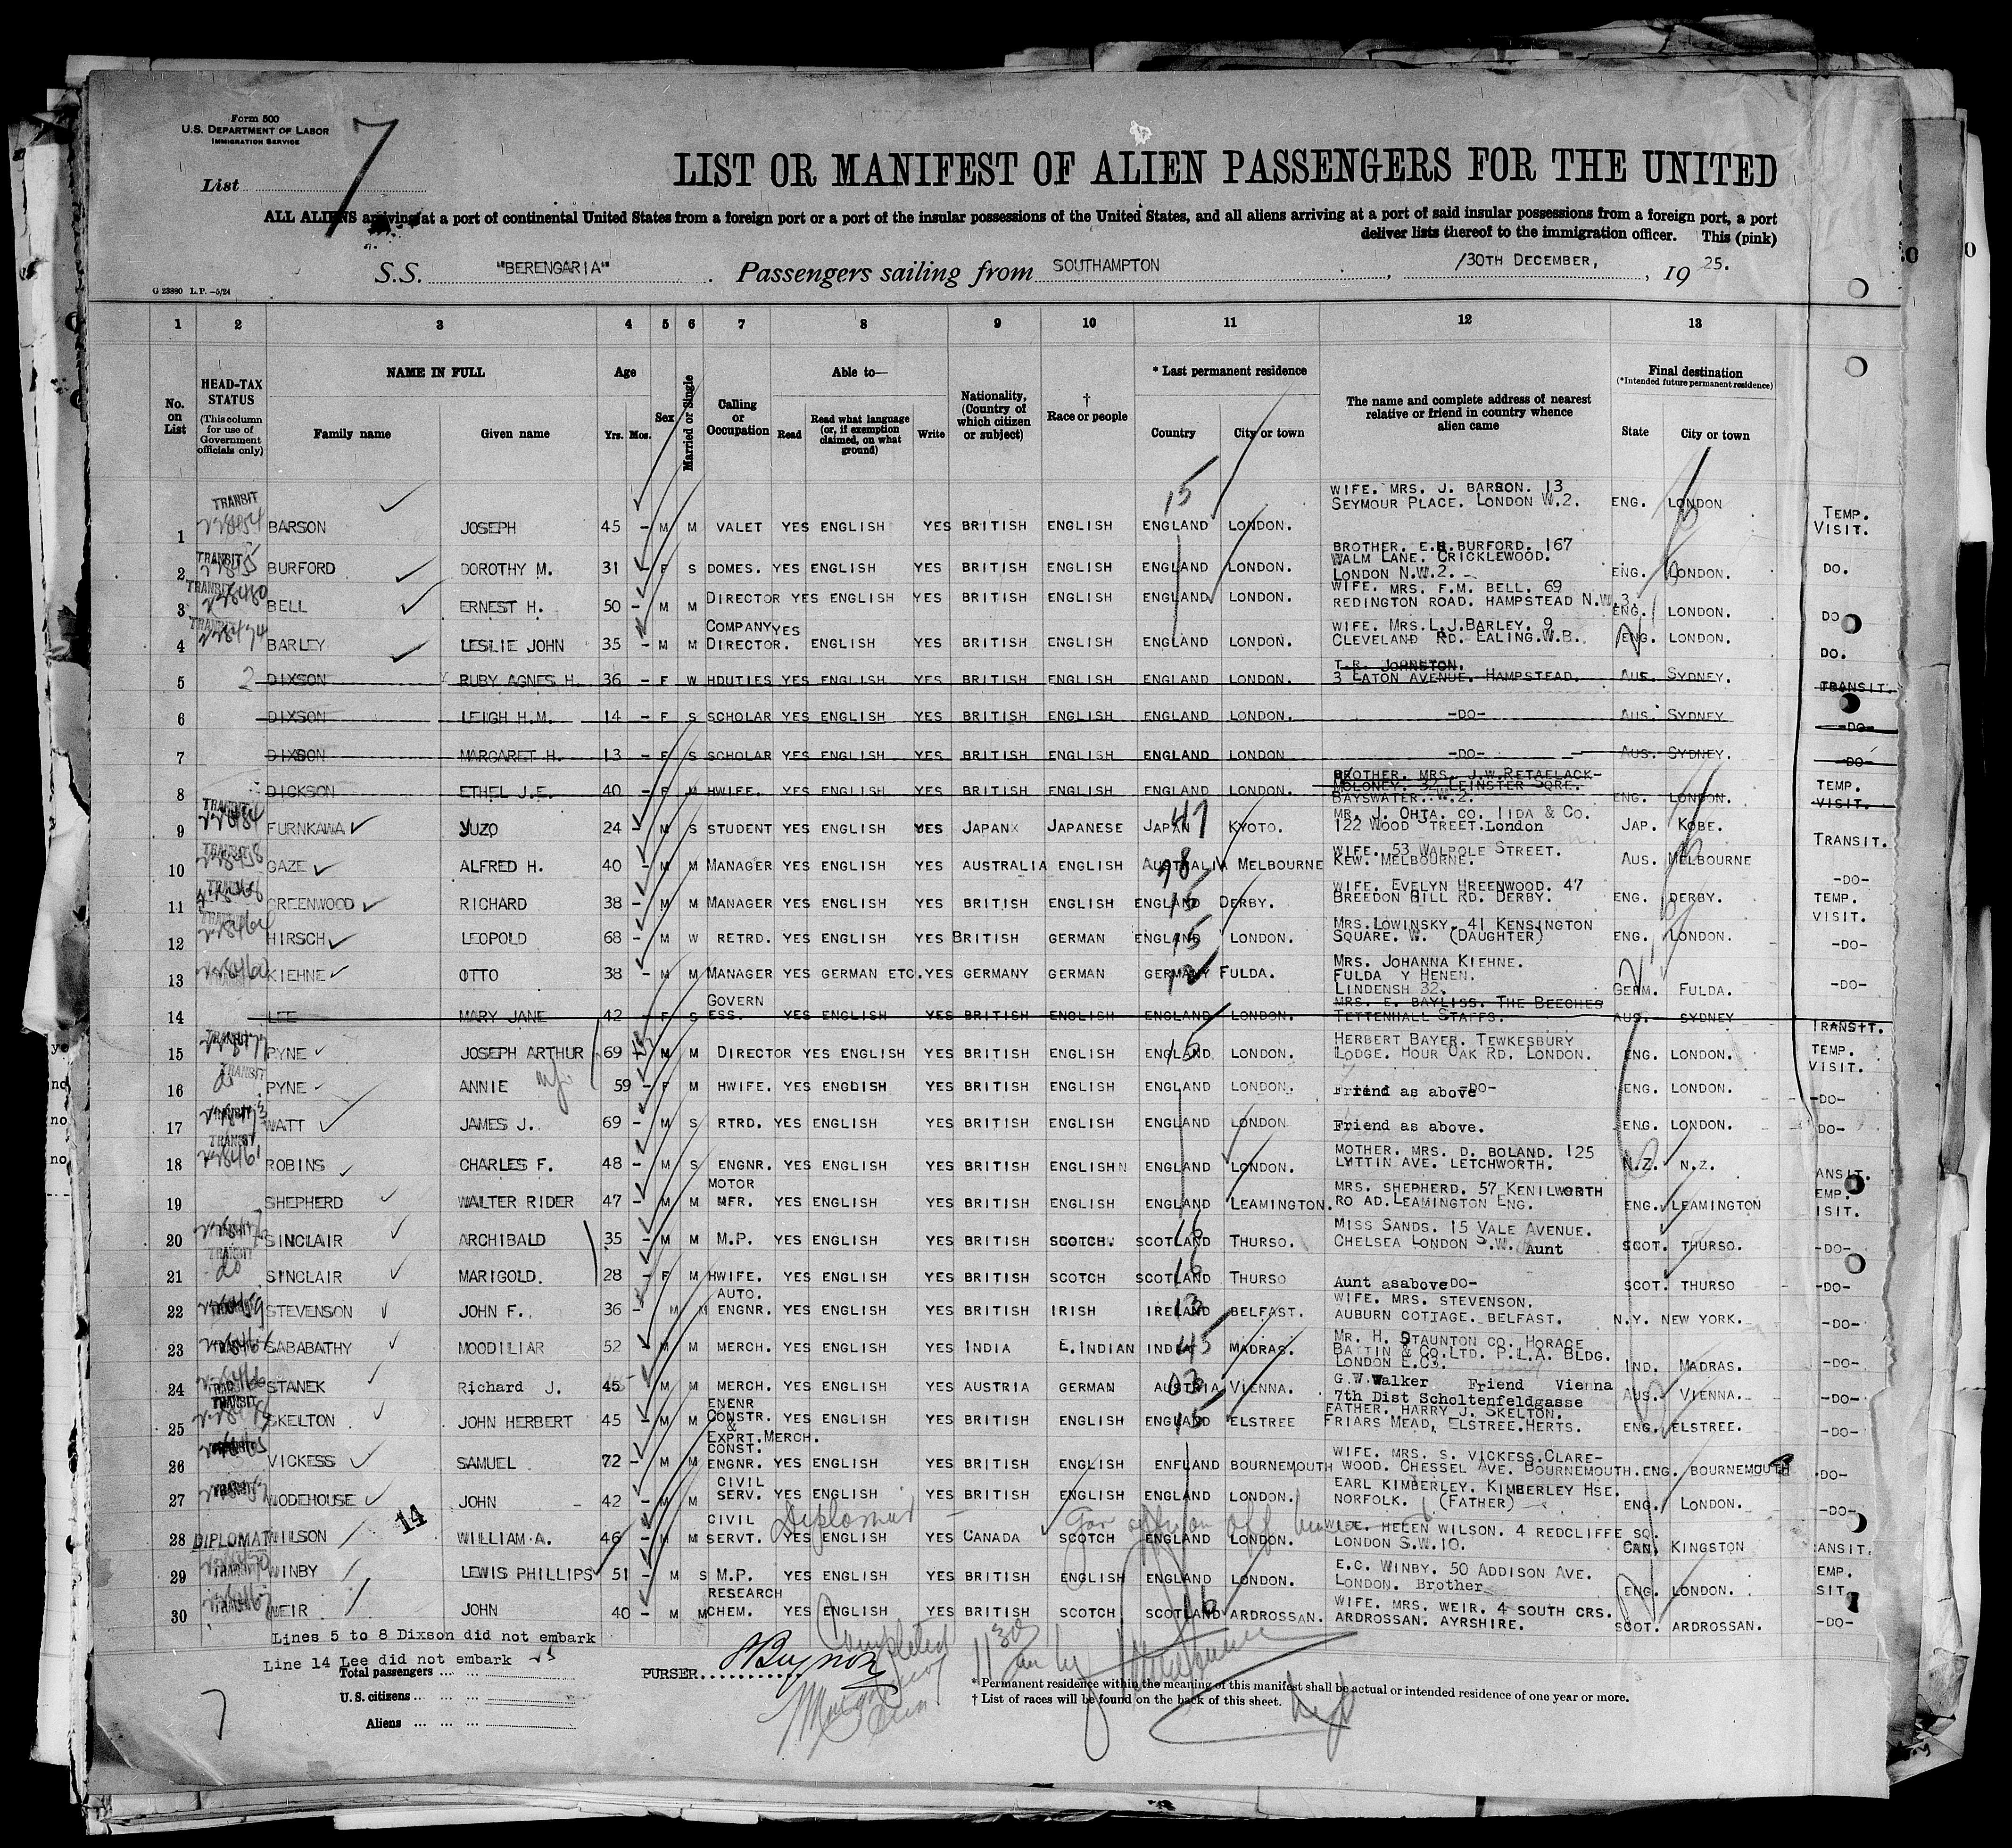 Form 500
U.S. DEPARTMENT OF LABOR
IMMIGRATION SERVICE
List 7
LIST OR MANIFEST OF ALIEN PASSENGERS FOR THE UNITED
ALL ALIENS arriving at a port of continental United States from a foreign port or a port of the insular possessions of the United States, and all aliens arriving at a port of said insular possessions from a foreign port, a port
deliver lists thereof to the immigration officer. This (pink)
S.S. "BERENGARIA". Passengers sailing from SOUTHAMPTON, 30TH DECEMBER, 1925.
G 23880 L.P. —5/24
1 2 3 4 5 6 7 8 9 10 11 12 13
No. on List
HEAD-TAX STATUS
(This column for use of Government officials only)
NAME IN FULL
Family name Given name
Age
Yrs. Mos.
Sex
Married or Single
Calling or Occupation
Able to—
Read Read what language (or, if exemption claimed, on what ground) Write
Nationality, (Country of which citizen or subject)
† Race or people
* Last permanent residence
Country City or town
The name and complete address of nearest relative or friend in country whence alien came
Final destination
(*Intended future permanent residence)
State City or town
1 TRANSIT BARSON JOSEPH 45 - M M VALET YES ENGLISH YES BRITISH ENGLISH ENGLAND LONDON. WIFE. MRS. J. BARSON. 13 SEYMOUR PLACE. LONDON W.2. ENG. LONDON TEMP. VISIT.
2 TRANSIT BURFORD DOROTHY M. 31 - F S DOMES. YES ENGLISH YES BRITISH ENGLISH ENGLAND LONDON. BROTHER. E.H.BURFORD. 167 WALM LANE. CRICKLEWOOD. LONDON N.W.2. ENG. LONDON. DO.
3 TRANSIT BELL ERNEST H. 50 - M M DIRECTOR YES ENGLISH YES BRITISH ENGLISH ENGLAND LONDON. WIFE. MRS. F.M. BELL. 69 REDINGTON ROAD. HAMPSTEAD N.W.3. ENG. LONDON. DO
4 TRANSIT BARLEY LESLIE JOHN 35 - M M COMPANY DIRECTOR. YES ENGLISH YES BRITISH ENGLISH ENGLAND LONDON. WIFE. MRS.L.J.BARLEY. 9 CLEVELAND RD. EALING.W.B. ENG. LONDON. DO.
5 DIXSON RUBY AGNES H. 36 - F W HDUTIES YES ENGLISH YES BRITISH ENGLISH ENGLAND LONDON. T.R. JOHNSTON. 3 EATON AVENUE. HAMPSTEAD. AUS. SYDNEY. TRANSIT.
6 DIXSON LEIGH H.M. 14 - F S SCHOLAR YES ENGLISH YES BRITISH ENGLISH ENGLAND LONDON. -DO- AUS. SYDNEY -DO-
7 DIXSON MARGARET H. 13 - F S SCHOLAR YES ENGLISH YES BRITISH ENGLISH ENGLAND LONDON -DO- AUS. SYDNEY. -DO-
8 DICKSON ETHEL J.E. 40 - F M HWIFE. YES ENGLISH YES BRITISH ENGLISH ENGLAND LONDON. BROTHER. MRS. J.W.RETAFLACK- MOLONEY. 32 LEINSTER SQRE. BAYSWATER. W.2. ENG. LONDON. TEMP. VISIT.
9 TRANSIT FURNKAWA YUZO 24 - M S STUDENT YES ENGLISH YES JAPAN JAPANESE JAPAN KYOTO. MR. J. OHTA. CO. IIDA & CO. 122 WOOD STREET.London JAP. KOBE. TRANSIT.
10 TRANSIT GAZE ALFRED H. 40 - M M MANAGER YES ENGLISH YES AUSTRALIA ENGLISH AUSTRALIA MELBOURNE WIFE. 53 WALPOLE STREET. KEW. MELBOURNE. AUS. MELBOURNE -DO-
11 TRANSIT GREENWOOD RICHARD 38 - M M MANAGER YES ENGLISH YES BRITISH ENGLISH ENGLAND DERBY. WIFE. EVELYN HREENWOOD. 47 BREEDON HILL RD. DERBY. ENG. DERBY. TEMP. VISIT.
12 HIRSCH LEOPOLD 68 - M W RETRD. YES ENGLISH YES BRITISH GERMAN ENGLAND LONDON. MRS.LOWINSKY. 41 KENSINGTON SQUARE. W. (DAUGHTER) ENG. LONDON. -DO-
13 TRANSIT KIEHNE OTTO 38 - M M MANAGER YES GERMAN ETC. YES GERMANY GERMAN GERMANY FULDA. MRS. JOHANNA KIEHNE. FULDA Y HENEN. LINDENSH 32. GERM. FULDA. -DO-
14 LEE MARY JANE 42 - F S GOVERN ESS. YES ENGLISH YES BRITISH ENGLISH ENGLAND LONDON. MRS. E. BAYLISS. THE BEECHES TETTENHALL STAFFS. AUS. SYDNEY TRANSIT.
15 TRANSIT PYNE JOSEPH ARTHUR 69 M M DIRECTOR YES ENGLISH YES BRITISH ENGLISH ENGLAND LONDON. HERBERT BAYER. TEWKESBURY LODGE. HOUR OAK RD. LONDON. ENG. LONDON. TEMP. VISIT.
16 do TRANSIT PYNE ANNIE wf 59 - F M HWIFE. YES ENGDISH YES BRITISH ENGLISH ENGLAND LONDON. Friend as above -DO- ENG. LONDON. -DO-
17 WATT JAMES J. 69 - M S RTRD. YES ENGLISH YES BRITISH ENGLISH ENGLAND LONDON Friend as above. ENG. LONDON. -DO-
18 TRANSIT ROBINS CHARLES F. 48 - M S ENGNR. YES ENGLISH YES BRITISH ENGLISHN ENGLAND LONDON. MOTHER. MRS. D. BOLAND. 125 LYTTIN AVE. LETCHWORTH. N.Z. N.Z. ANSIT.
19 SHEPHERD WALTER RIDER 47 - M M MOTOR MFR. YES ENGLISH YES BRITISH ENGLISH ENGLAND LEAMINGTON. MRS. SHEPHERD. 57 KENILWORTH RO AD.LEAMINGTON ENG. ENG. LEAMINGTON EMP. ISIT.
20 SINCLAIR ARCHIBALD 35 - M M M.P. YES ENGLISH YES BRITISH SCOTCH. SCOTLAND THURSO. MISS SANDS. 15 VALE AVENUE. CHELSEA LONDON S.W. Aunt SCOT. THURSO. -DO-
21 TRANSIT do SINCLAIR MARIGOLD. 28 - F M HWIFE. YES ENGLISH YES BRITISH SCOTCH SCOTLAND THURSO Aunt asabove DO- SCOT. THURSO -DO-
22 STEVENSON JOHN F. 36 - M M AUTO. ENGNR. YES ENGLISH YES BRITISH IRISH IRELAND BELFAST. WIFE. MRS. STEVENSON. AUBURN COTTAGE. BELFAST. N.Y. NEW YORK. -DO-
23 SABABATHY MOODILIAR 52 - M M MERCH. YES ENGLISH YES INDIA E.INDIAN INDIA MADRAS. MR. H. STAUNTON CO. HORACE BATTIN & CO.LTD. P.L.A. BLDG. LONDON E.C3. IND. MADRAS. -DO-
24 STANEK Richard J. 45 - M M MERCH. YES ENGLISH YES AUSTRIA GERMAN AUSTRIA VIENNA. G.W.Walker Friend Vienna 7th Dist Scholtenfeldgasse AUS. VIENNA. -DO-
25 TRANSIT SKELTON JOHN HERBERT 45 - M M ENENR CONSTR. & EXPRT.MERCH. YES ENGLISH YES BRITISH ENGLISH ENGLAND ELSTREE FATHER. HARRY J. SKELTON. FRIARS MEAD, ELSTREE.HERTS. ENG. ELSTREE. -DO-
26 VICKESS SAMUEL 72 - M M CONST. ENGNR. YES ENGLISH YES BRITISH ENGLISH ENFLAND BOURNEMOUTH WIFE. MRS. S. VICKESS.CLARE- WOOD. CHESSEL AVE. BOURNEMOUTH. ENG. BOURNEMOUTH -DO-
27 TRANSIT WODEHOUSE JOHN - 42 - M M CIVIL SERV. YES ENGLISH YES BRITISH ENGLISH ENGLAND LONDON. EARL KIMBERLEY. KIMBERLEY HSE. NORFOLK. (FATHER) ENG. LONDON. -DO-
28 DIPLOMAT WILSON 14 WILLIAM A. 46 - M M CIVIL SERVT. Diplomat YES ENGLISH YES CANADA SCOTCH ENGLAND LONDON. WIFE. HELEN WILSON. 4 REDCLIFFE SQ. LONDON S.W.10. CAN. KINGSTON ANSIT.
29 TRANSIT WINBY LEWIS PHILLIPS 51 - M S M.P. YES ENGLISH YES BRITISH ENGLISH ENGLAND LONDON. E.C. WINBY. 50 ADDISON AVE. LONDON. Brother ENG. LONDON. EMP. SIT.
30 TRANSIT WEIR JOHN 40 - M M RESEARCH CHEM. YES ENGLISH YES BRITISH SCOTCH SCOTLAND ARDROSSAN. WIFE. MRS. WEIR. 4 SOUTH CRS. ARDROSSAN. AYRSHIRE. SCOT. ARDROSSAN. -DO-
Lines 5 to 8 Dixson did not embark
Line 14 Lee did not embark
Total passengers
U.S. citizens
Aliens
PURSER
Completed
* Permanent residence within the meaning of this manifest shall be actual or intended residence of one year or more.
† List of races will be found on the back of this sheet.
7